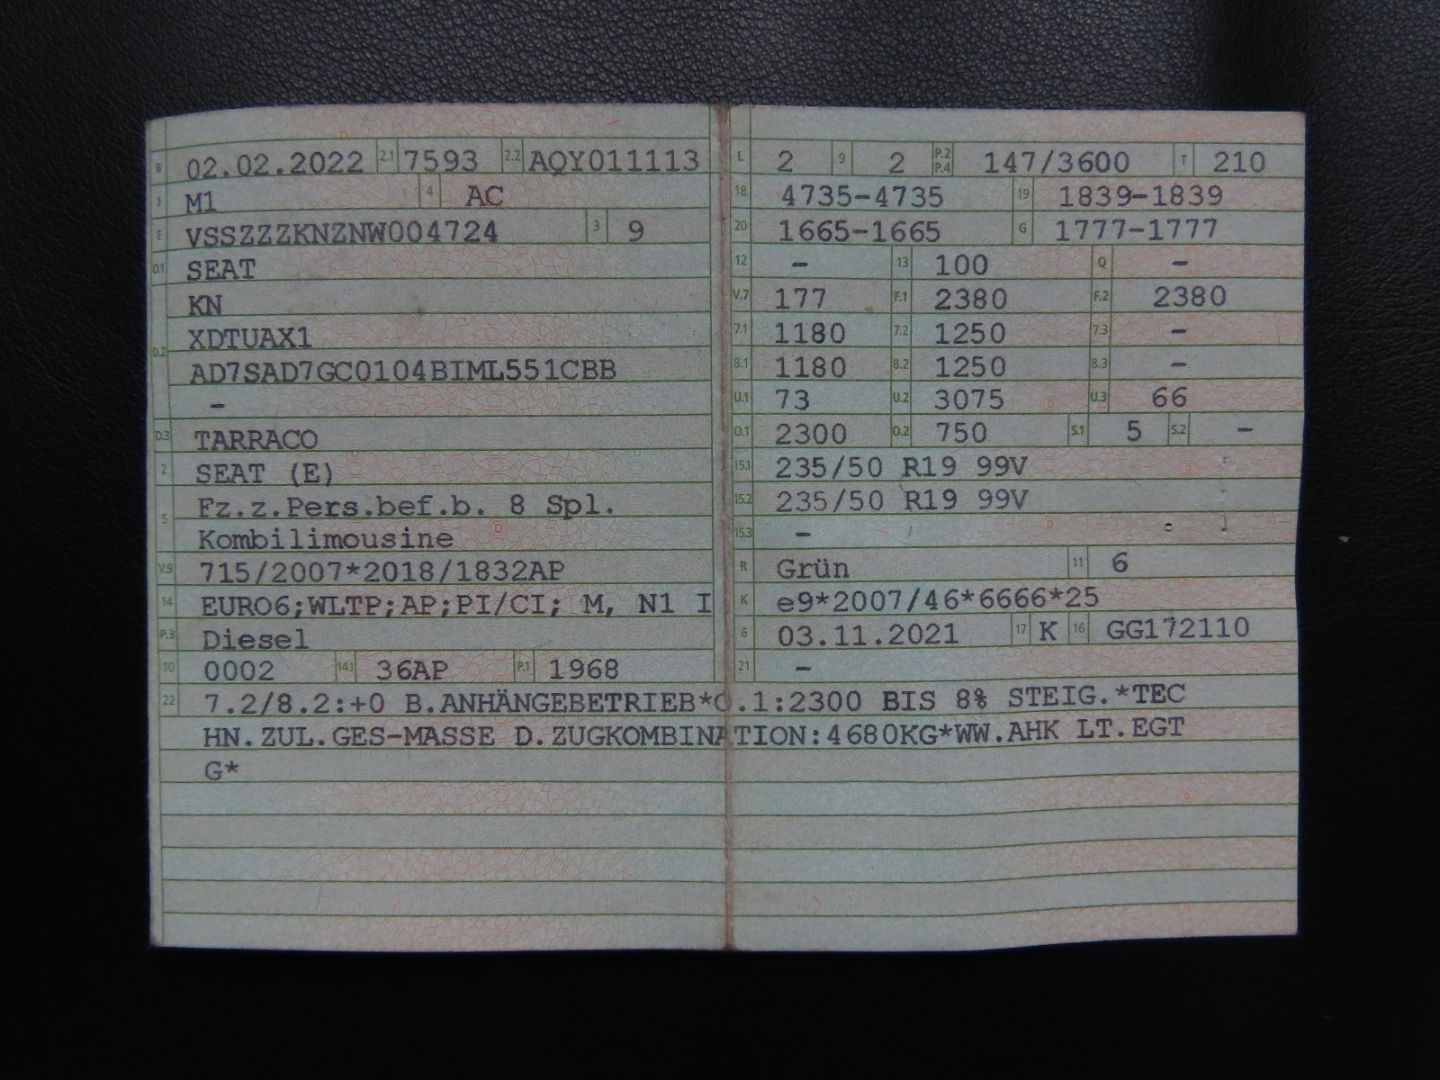 B 02.02.2022 2.1 7593 2.2 AQY011113
J M1 4 AC
E VSSZZZKNZNW004724 3 9
D.1 SEAT
KN
D.2 XDTUAX1
AD7SAD7GC0104BIML551CBB
–
D.3 TARRACO
2 SEAT (E)
5 Fz.z.Pers.bef.b. 8 Spl.
Kombilimousine
V.9 715/2007*2018/1832AP
14 EURO6;WLTP;AP;PI/CI; M, N1 I
P.3 Diesel
10 0002 14.1 36AP P.1 1968
L 2 9 2 P.2 P.4 147/3600 T 210
18 4735–4735 19 1839–1839
20 1665–1665 G 1777–1777
12 – 13 100 Q –
V.7 177 F.1 2380 F.2 2380
7.1 1180 7.2 1250 7.3 –
8.1 1180 8.2 1250 8.3 –
U.1 73 U.2 3075 U.3 66
O.1 2300 O.2 750 S.1 5 S.2 –
15.1 235/50 R19 99V
15.2 235/50 R19 99V
15.3 –
R Grün 11 6
K e9*2007/46*6666*25
6 03.11.2021 17 K 16 GG172110
21 –
22 7.2/8.2:+0 B.ANHÄNGEBETRIEB*O.1:2300 BIS 8% STEIG.*TEC
HN.ZUL.GES–MASSE D.ZUGKOMBINATION:4680KG*WW.AHK LT.EGT
G*